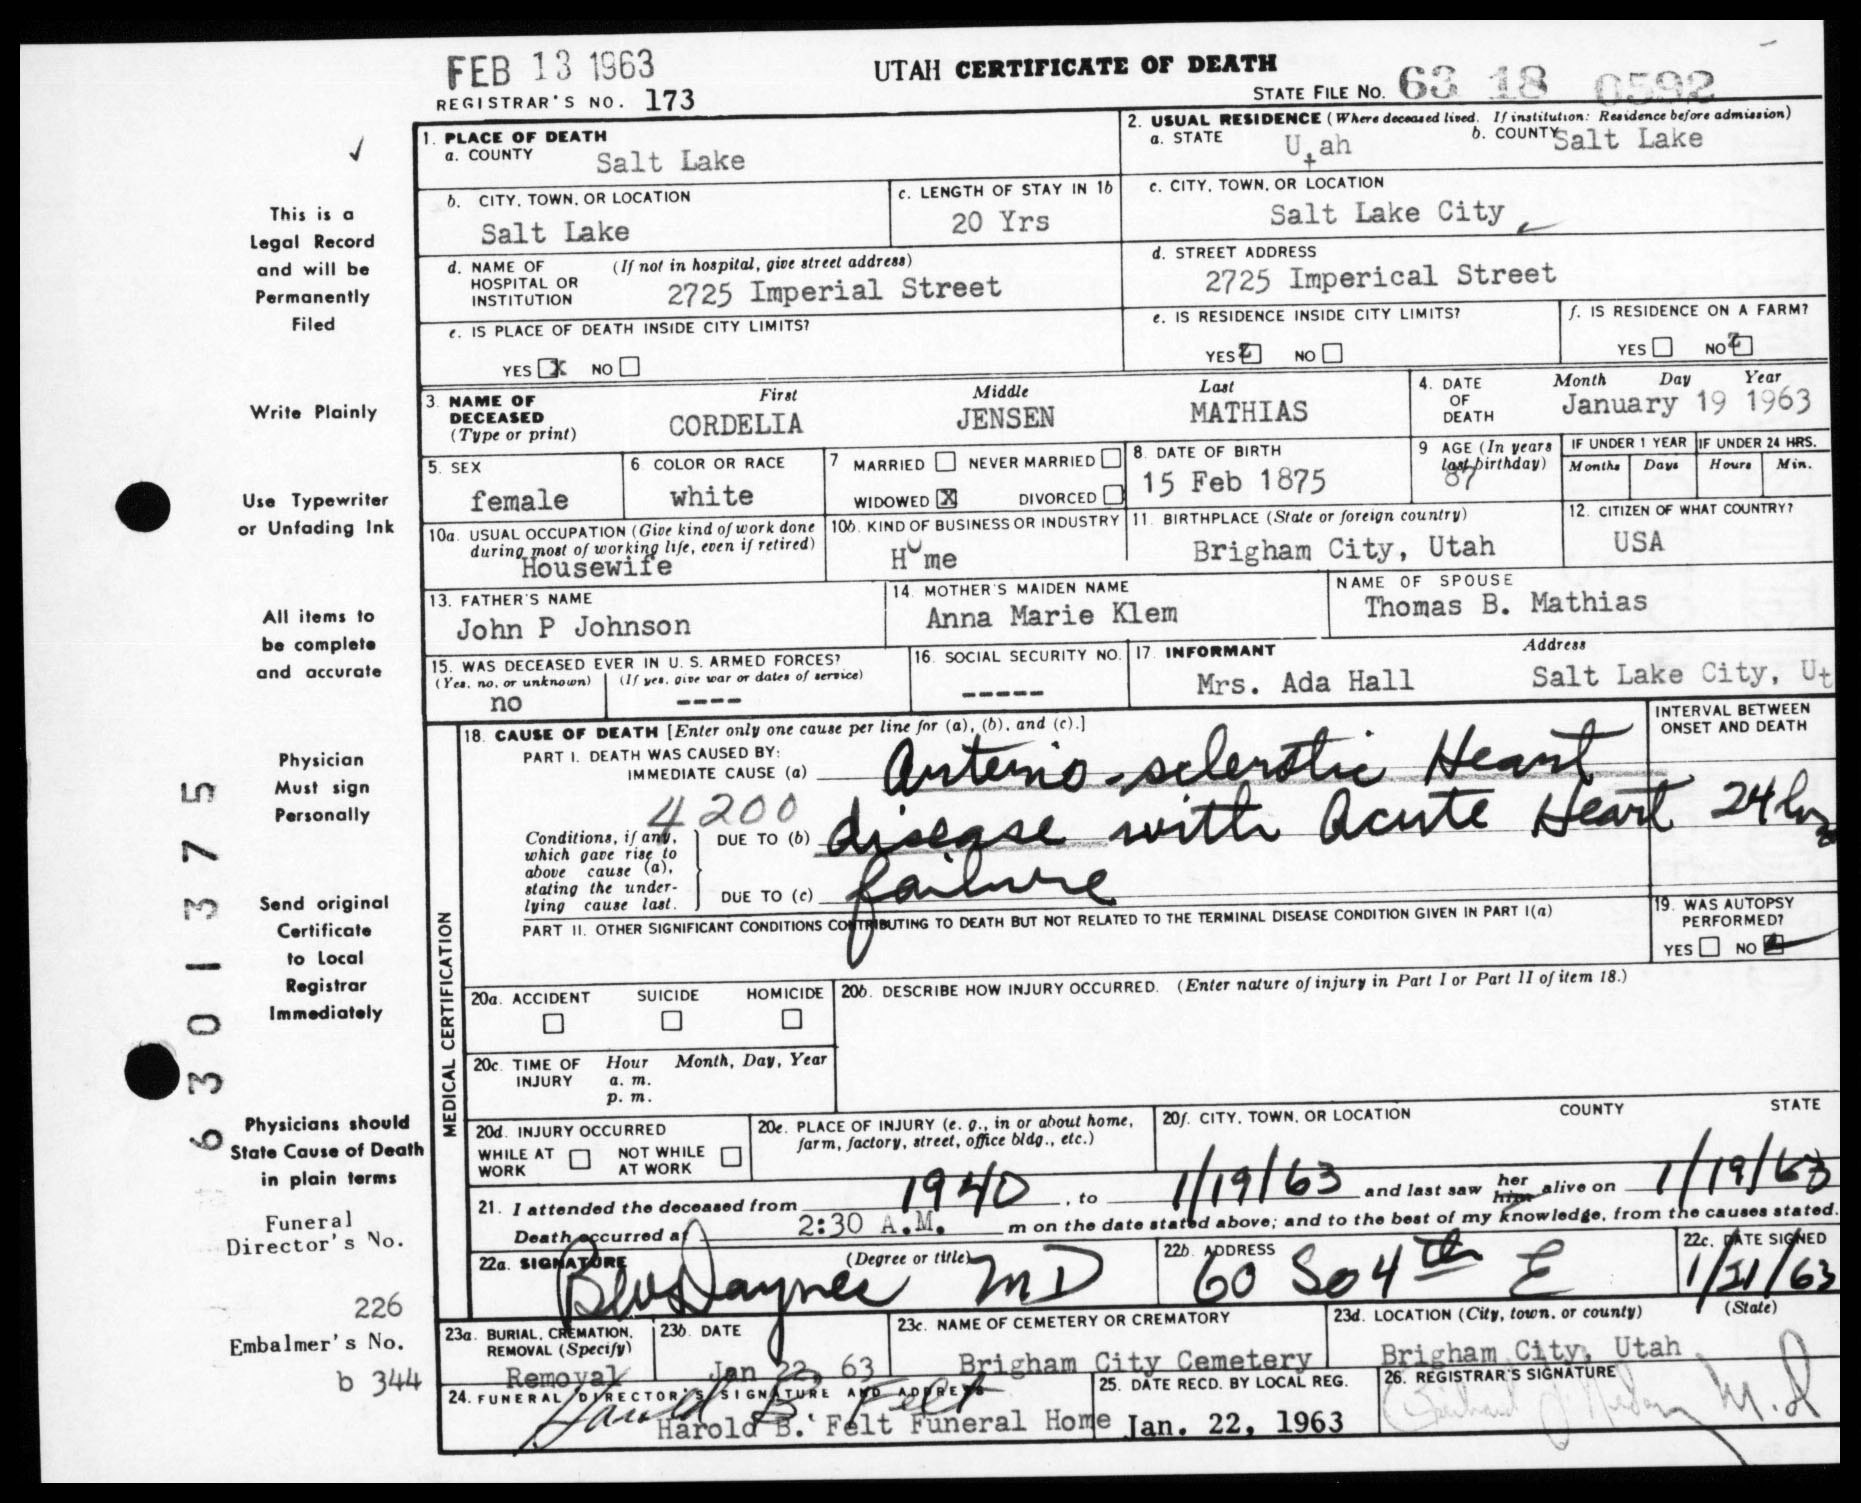 FEB 13 1963
UTAH CERTIFICATE OF DEATH
REGISTRAR'S NO. 173
STATE FILE NO. 63 18 0592
1. PLACE OF DEATH
a. COUNTY Salt Lake
2. USUAL RESIDENCE (Where deceased lived. If institution: Residence before admission)
a. STATE Utah b. COUNTY Salt Lake
b. CITY, TOWN, OR LOCATION
Salt Lake
c. LENGTH OF STAY IN 1b
20 Yrs
c. CITY, TOWN, OR LOCATION
Salt Lake City
d. NAME OF HOSPITAL OR INSTITUTION (If not in hospital, give street address)
2725 Imperial Street
d. STREET ADDRESS
2725 Imperical Street
e. IS PLACE OF DEATH INSIDE CITY LIMITS?
YES X NO
e. IS RESIDENCE INSIDE CITY LIMITS?
YES NO
f. IS RESIDENCE ON A FARM?
YES NO
3. NAME OF DECEASED (Type or print)
First Middle Last
CORDELIA JENSEN MATHIAS
4. DATE OF DEATH
Month Day Year
January 19 1963
5. SEX
female
6. COLOR OR RACE
white
7 MARRIED NEVER MARRIED
WIDOWED X DIVORCED
8. DATE OF BIRTH
15 Feb 1875
9 AGE (In years last birthday)
87
IF UNDER 1 YEAR IF UNDER 24 HRS.
Months Days Hours Min.
10a. USUAL OCCUPATION (Give kind of work done during most of working life, even if retired)
Housewife
10b. KIND OF BUSINESS OR INDUSTRY
Home
11. BIRTHPLACE (State or foreign country)
Brigham City, Utah
12. CITIZEN OF WHAT COUNTRY?
USA
13. FATHER'S NAME
John P Johnson
14. MOTHER'S MAIDEN NAME
Anna Marie Klem
NAME OF SPOUSE
Thomas B. Mathias
15. WAS DECEASED EVER IN U. S. ARMED FORCES?
(Yes, no, or unknown) (If yes, give war or dates of service)
no ----
16. SOCIAL SECURITY NO.
-----
17. INFORMANT Address
Mrs. Ada Hall Salt Lake City, Ut
MEDICAL CERTIFICATION
18. CAUSE OF DEATH [Enter only one cause per line for (a), (b), and (c).]
PART I. DEATH WAS CAUSED BY:
IMMEDIATE CAUSE (a) Arterio-sclerotic Heart
4200
Conditions, if any, which gave rise to above cause (a), stating the underlying cause last.
DUE TO (b) disease with Acute Heart
DUE TO (c) failure
INTERVAL BETWEEN ONSET AND DEATH
24 hrs
PART II. OTHER SIGNIFICANT CONDITIONS CONTRIBUTING TO DEATH BUT NOT RELATED TO THE TERMINAL DISEASE CONDITION GIVEN IN PART I(a)
19. WAS AUTOPSY PERFORMED?
YES NO
20a. ACCIDENT SUICIDE HOMICIDE
20b. DESCRIBE HOW INJURY OCCURRED. (Enter nature of injury in Part I or Part II of item 18.)
20c. TIME OF INJURY Hour Month, Day, Year
a. m.
p. m.
20d. INJURY OCCURRED
WHILE AT WORK NOT WHILE AT WORK
20e. PLACE OF INJURY (e. g., in or about home, farm, factory, street, office bldg., etc.)
20f. CITY, TOWN, OR LOCATION COUNTY STATE
21. I attended the deceased from 1940, to 1/19/63 and last saw her him alive on 1/19/63
Death occurred at 2:30 A.M. m on the date stated above; and to the best of my knowledge, from the causes stated.
22a. SIGNATURE (Degree or title)
MD
22b. ADDRESS
60 So 4th E
22c. DATE SIGNED
1/21/63
23a. BURIAL, CREMATION, REMOVAL (Specify)
Removal
23b. DATE
Jan 22, 63
23c. NAME OF CEMETERY OR CREMATORY
Brigham City Cemetery
23d. LOCATION (City, town, or county) (State)
Brigham City, Utah
24. FUNERAL DIRECTOR'S SIGNATURE AND ADDRESS
Harold B. Felt
Harold B. Felt Funeral Home
25. DATE RECD. BY LOCAL REG.
Jan. 22, 1963
26. REGISTRAR'S SIGNATURE
M.D
This is a
Legal Record
and will be
Permanently
Filed
Write Plainly
Use Typewriter
or Unfading Ink
All items to
be complete
and accurate
Physician
Must sign
Personally
Send original
Certificate
to Local
Registrar
Immediately
Physicians should
State Cause of Death
in plain terms
Funeral
Director's No.
226
Embalmer's No.
b 344
6301375